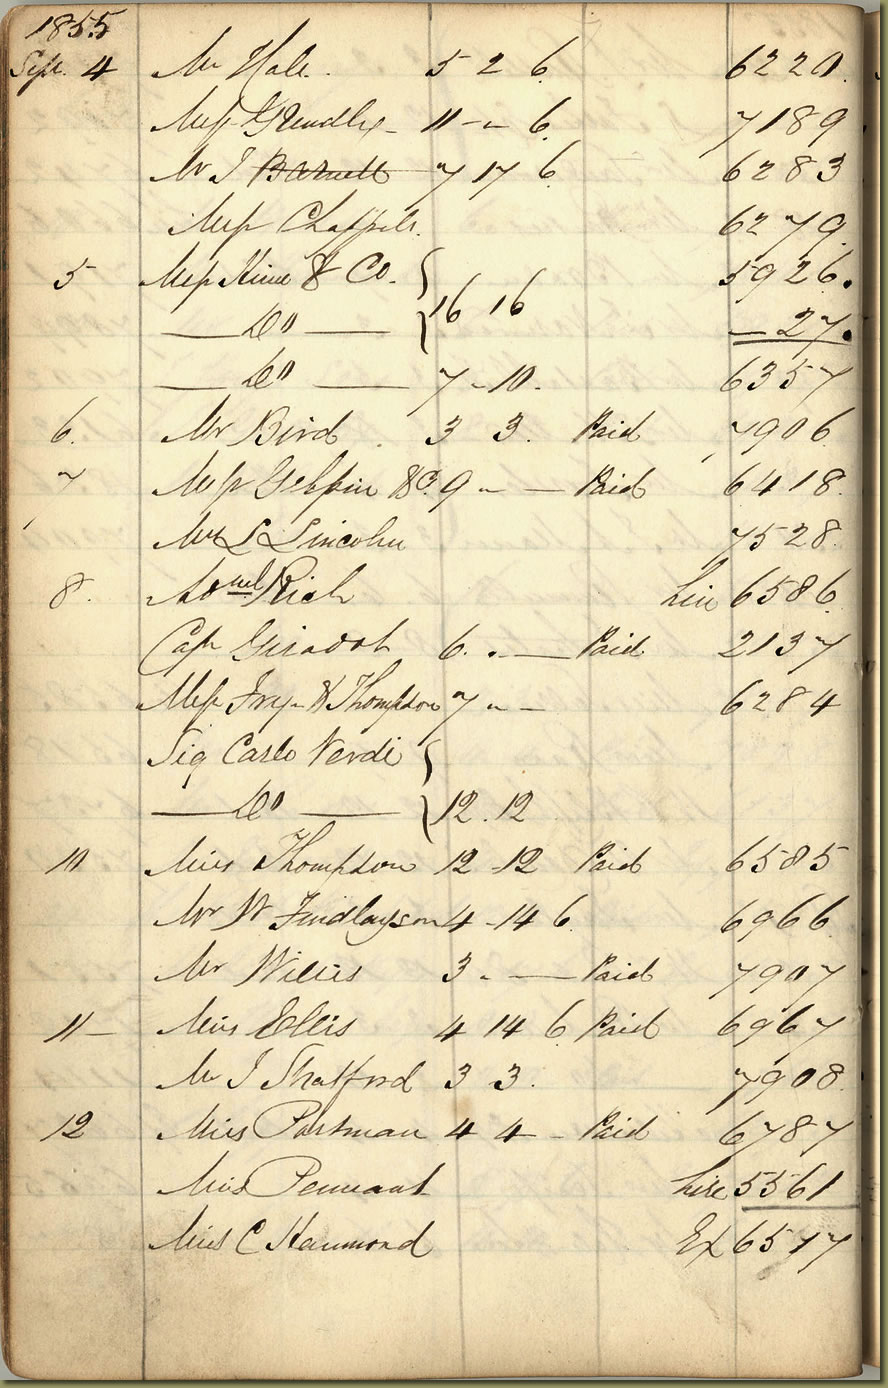 1855
Sept. 4 Mr Hale. 5 2 6 6220.
Mess Grundly - 11 - - 6. 7189
Mr J Barnett 7 17 6 6283
Mess Chappels. 6279.
5 Mess Hime & Co. 5926.
— Do — 16 16 — 27.
— Do — 7 - 10. 6357
6. Mr Bird. 3 3. Paid 7906
7 Mess &Co. 9 - — Paid 6418.
Mrs L Lincoln 7528.
8. Rich hire 6586.
Cap Giradot 6. . — Paid 2137
Mess Ivey & Thompson 7 - - 6284
Sig Carlo Verdi
— Do — 12.12
10 Miss Thompson 12 -12 Paid 6585
Mr W Findlayson 4 -14 6. 6966
Mr Willis 3 - — Paid 7907
11 — Miss Ellis 4 14 6 Paid 6967
Mr J Shafford 3 3. 7908.
12 Miss Portman 4 4 - Paid 6787
Miss Pennant hire 5561
Miss C Hammond Ex 6517